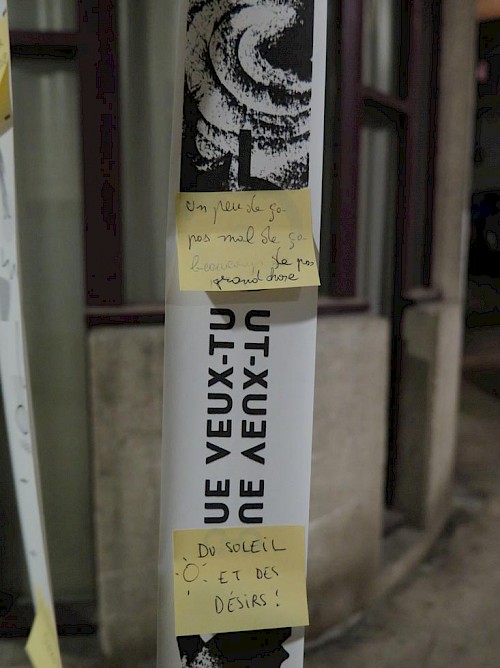 Un peu de ça
pas mal de ça
beaucoup de pas
grand chose
UE VEUX-TU
UE VEUX-TU
DU SOLEIL
ET DES
DÉSIRS !